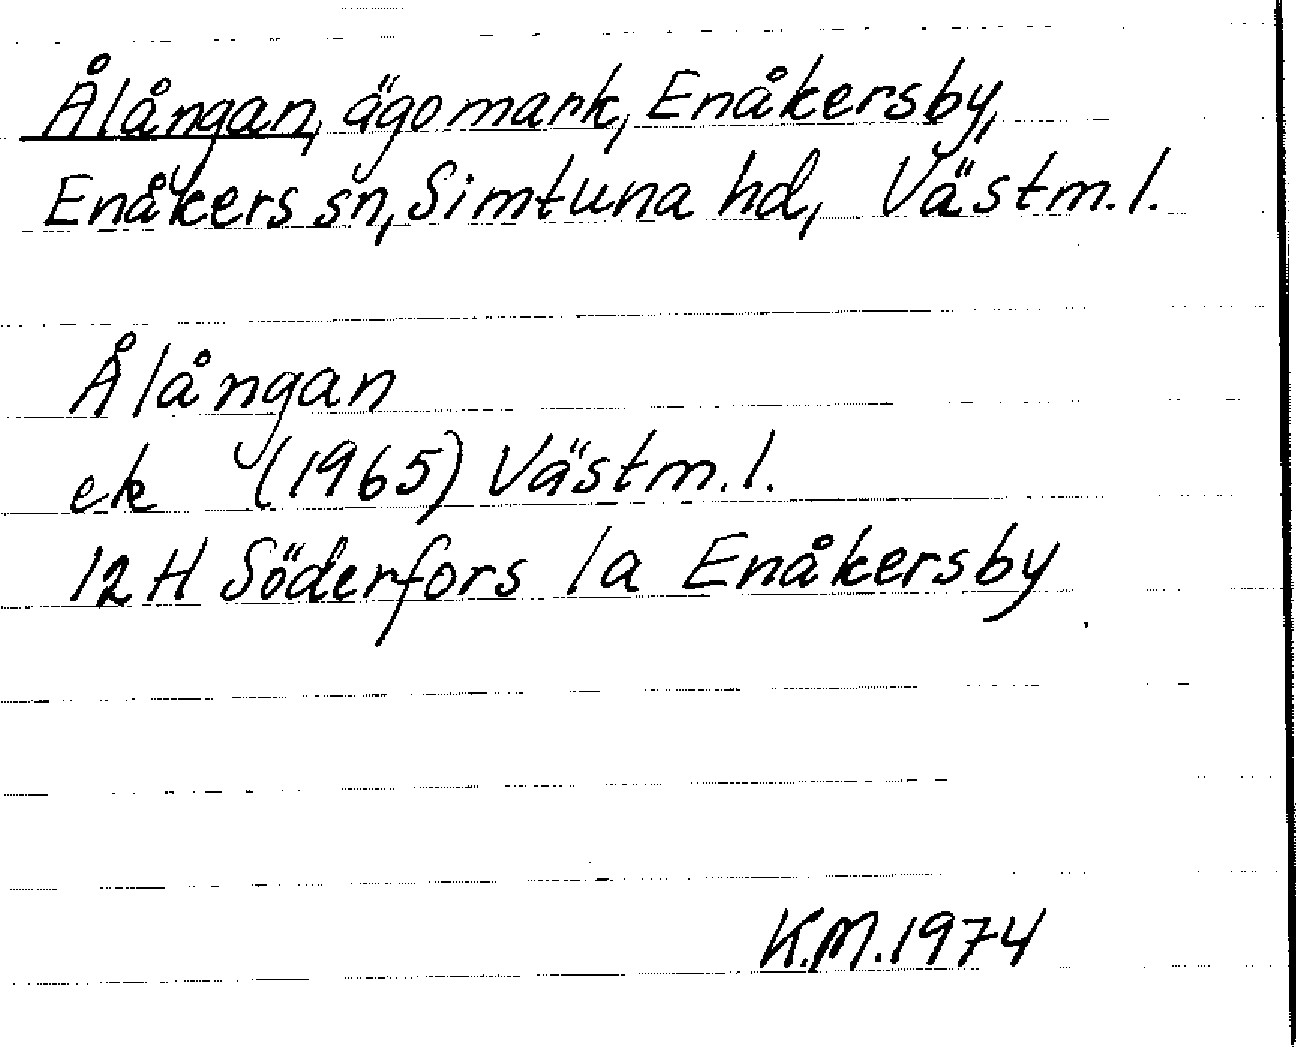 Ålångan, ägomark, Enåkersby,
Enåkers sn, Simtuna hd, Västm. l.
Ålångan
ek (1965) Västm. l.
12 H Söderfors 1a Enåkersby
K.M. 1974